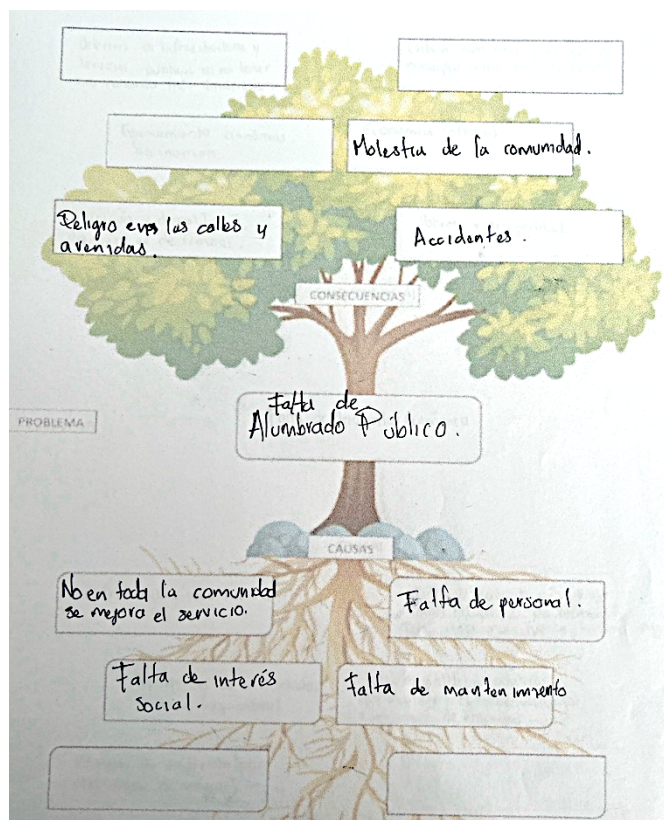 Molestia de la comunidad.
Peligro en las calles y
avenidas.
Accidentes.
CONSECUENCIAS
PROBLEMA
Falta de
Alumbrado Público.
CAUSAS
No en toda la comunidad
se mejora el servicio.
Falta de personal.
Falta de interés
social.
Falta de mantenimiento